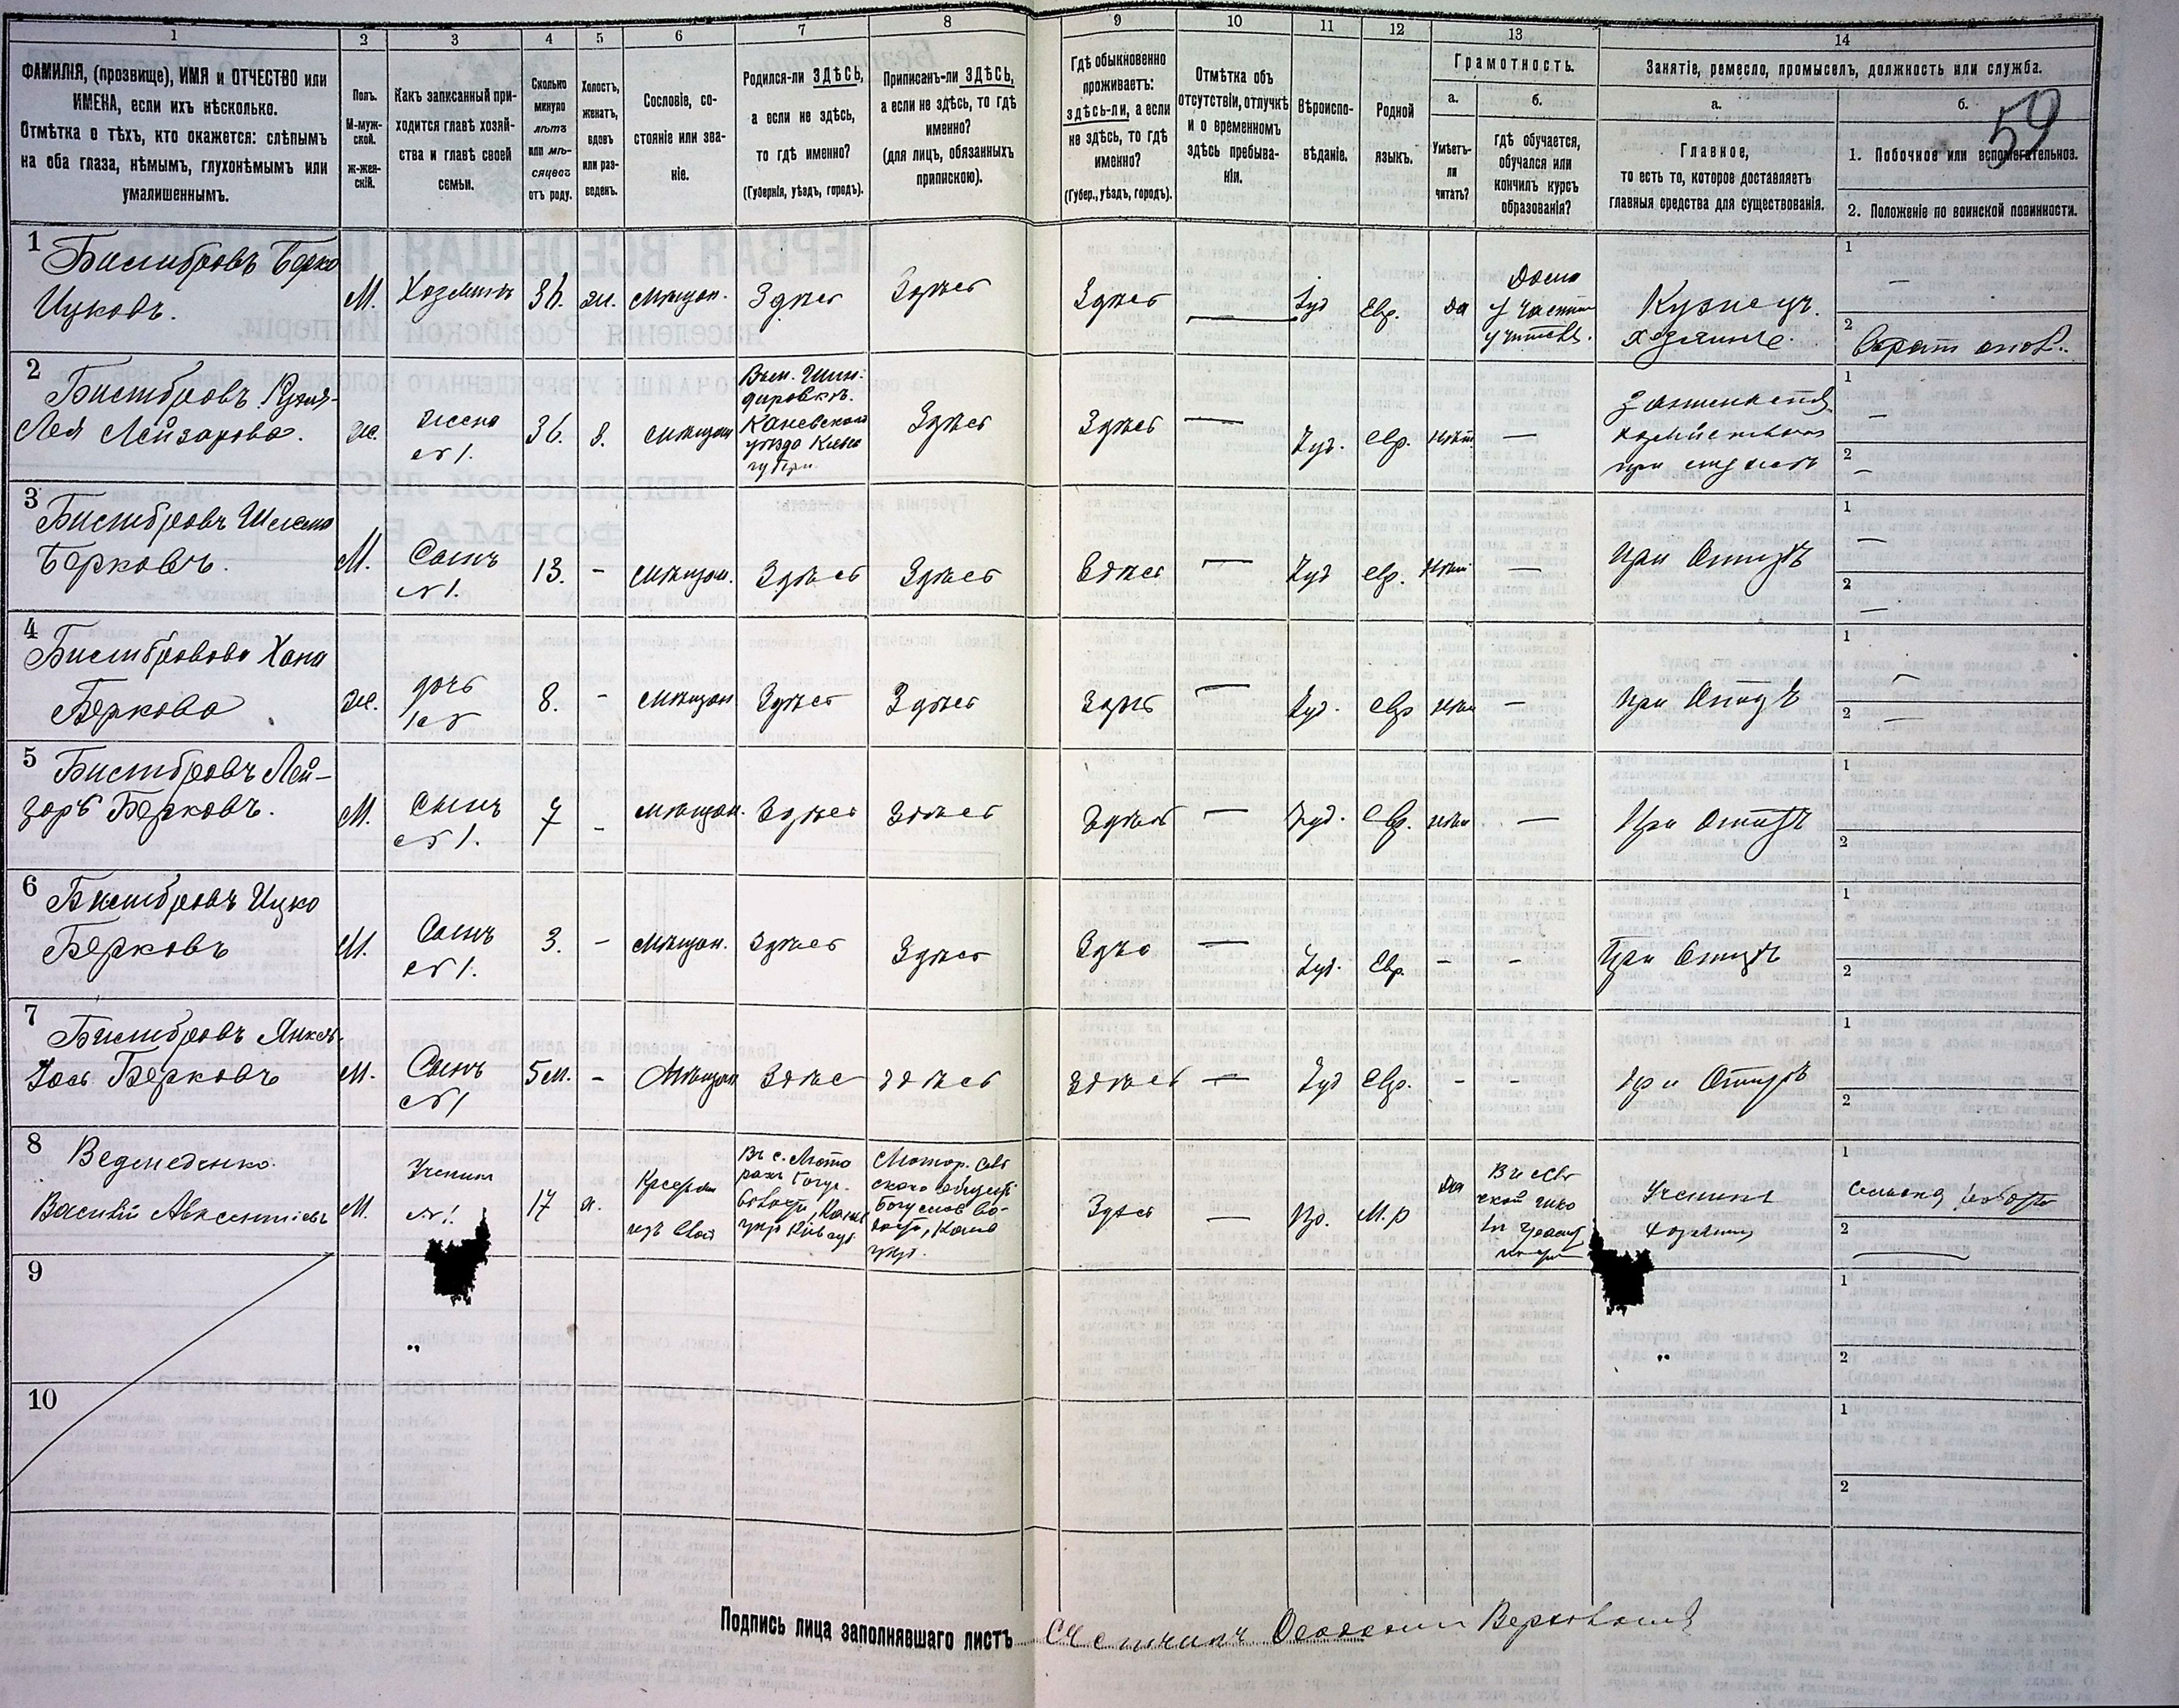 1 2 3 4 5 6 7 8 9 10 11 12 13 14
ФАМИЛІЯ, (прозвище), ИМЯ и ОТЧЕСТВО или
ИМЕНА, если ихъ нѣсколько.
Отмѣтка о тѣхъ, кто окажется: слѣпымъ
на оба глаза, нѣмымъ, глухонѣмымъ или
умалишеннымъ.
Полъ.
М-муж-
ской.
ж-жен-
скій.
Какъ записанный при-
ходится главѣ хозяй-
ства и главѣ своей
семьи.
Сколько
минуло
лѣтъ
или мѣ-
сяцевъ
отъ роду.
Холостъ,
женатъ,
вдовъ
или раз-
веденъ.
Сословіе, со-
стояніе или зва-
ніе.
Родился-ли ЗДѢСЬ,
а если не здѣсь,
то гдѣ именно?
(Губернія, уѣздъ, городъ).
Приписанъ-ли ЗДѢСЬ,
а если не здѣсь, то гдѣ
именно?
(для лицъ, обязанныхъ
припискою).
Гдѣ обыкновенно
проживаетъ:
здѣсь-ли, а если
не здѣсь, то гдѣ
именно?
(Губер., уѣздъ, городъ).
Отмѣтка объ
отсутствіи, отлучкѣ
и о временномъ
здѣсь пребыва-
ніи.
Вѣроиспо-
вѣданіе.
Родной
языкъ.
Грамотность.
а.
Умѣетъ-
ли
читать?
б.
Гдѣ обучается,
обучался или
кончилъ курсъ
образованія?
Занятіе, ремесло, промыселъ, должность или служба.
а.
Главное,
то есть то, которое доставляетъ
главныя средства для существованія.
б.
59
1. Побочное или вспомогательное.
2. Положеніе по воинской повинности.
1 Бистибровъ Берко
Ицковъ. М. Хозяинъ 36. ж. мѣщан. Здѣсь Здѣсь Здѣсь — Іуд Евр. да
Дома
у частн
учителя.
Кузнецъ.
хозяинъ.
1 —
2
2 Бистибровъ
Лея Лейзорова. же. жена 36. з. мѣщан
№ 1.
Каневскаго
уѣзда Кіевс
губерн.
Здѣсь Здѣсь — Іуд. евр. нѣт —
Занимается
хозяйством
при мужѣ
1 —
2 —
3 Бистибровъ Шлема
Берковъ. М. Сынъ 13. - мѣщан. Здѣсь Здѣсь Здѣсь — Іуд евр. нѣт — при Отцѣ
№ 1.
1 —
2 —
4 Бистиброва Хана
Беркова же. дочь 8. - мѣщан Здѣсь Здѣсь Здѣсь — Іуд. евр нѣт — при Отцѣ
1 —
2 —
5 Бистибровъ Лей-
зоръ Берковъ. М. Сынъ 7 - мѣщан. Здѣсь Здѣсь Здѣсь — Іуд. евр. нѣт — при Отцѣ
№ 1.
1
2
6 Бистибровъ Ицко
Берковъ М. Сынъ 3. - мѣщан. Здѣсь Здѣсь Здѣсь — Іуд. евр. - - При Отцѣ
№ 1.
1
2
7 Бистибровъ Янкель
Іось Берковъ М. Сынъ 5 м. - мѣщан Здѣсь здѣсь здѣсь — Іуд евр. - - при Отцѣ
№ 1
1
2
8 Ведмеденко.
Василій Авксентіевъ М. Ученик 17 х.
№ 1.
Крестьян
Здѣсь — Пр. М.р да
Ученикъ
1
2
9
1
2
10
1
2
Подпись лица заполнявшаго листъ Счетчикъ